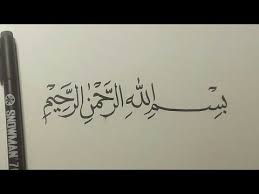 بِسْمِ اللهِ الرَّحْمٰنِ الرَّحِيْمِ
SNOWMAN